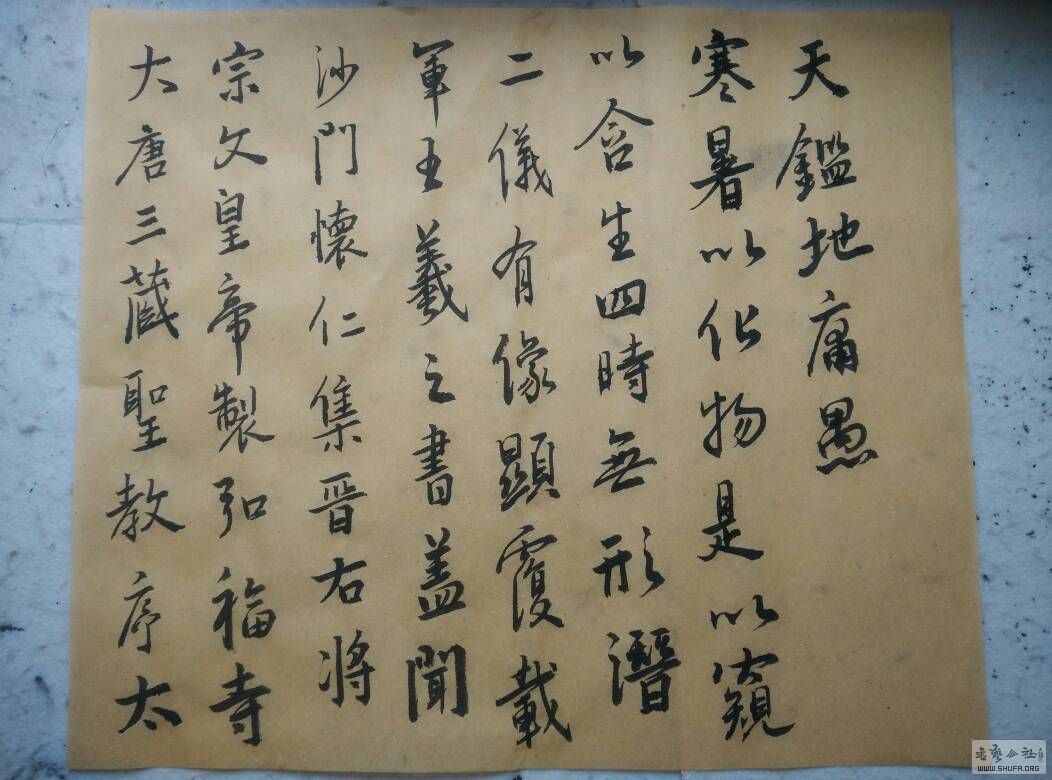 大唐三藏聖教序太
宗文皇帝製弘福寺
沙門懷仁集晉右將
軍王羲之書蓋聞
二儀有像顯覆載
以含生四時無形潛
寒暑以化物是以窺
天鑑地庸愚
书艺公社
WWW.SHUFA.ORG